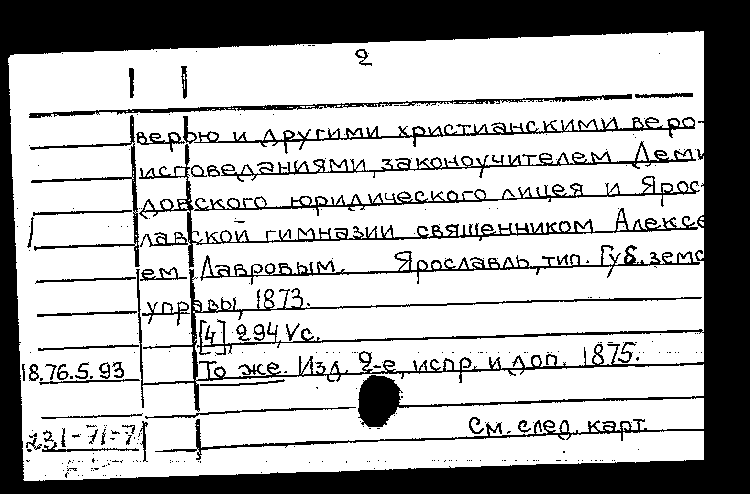 2
верою и другими христианскими веро-
исповеданиями, законоучителем Деми
довского юридического лицея и Ярос-
лавской гимназии священником Алексе
ем Лавровым. Ярославль, тип. Губ. земс
управы, 1873.
[4], 294, V с.
18.76.5.93 То же. Изд. 2-е, испр. и доп. 1875.
См. след. карт.